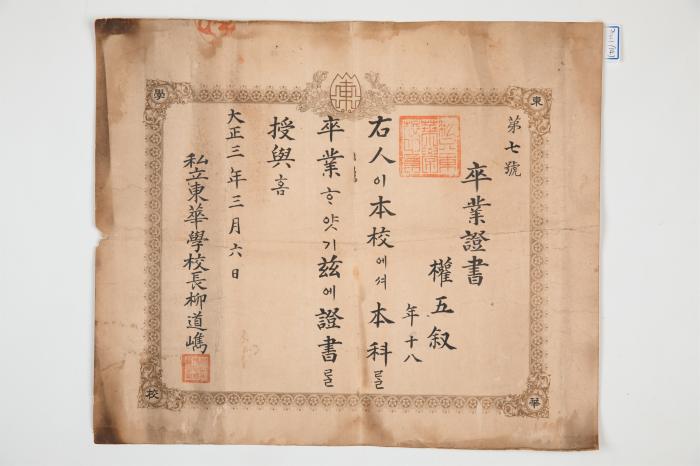 東華學校
第七號
卒業證書
權五叙
年十八
右人이本校에셔本科를
卒業ᄒᆞ얏기玆에證書를
授與홈
大正三年三月六日
私立東華學校長柳道嶲